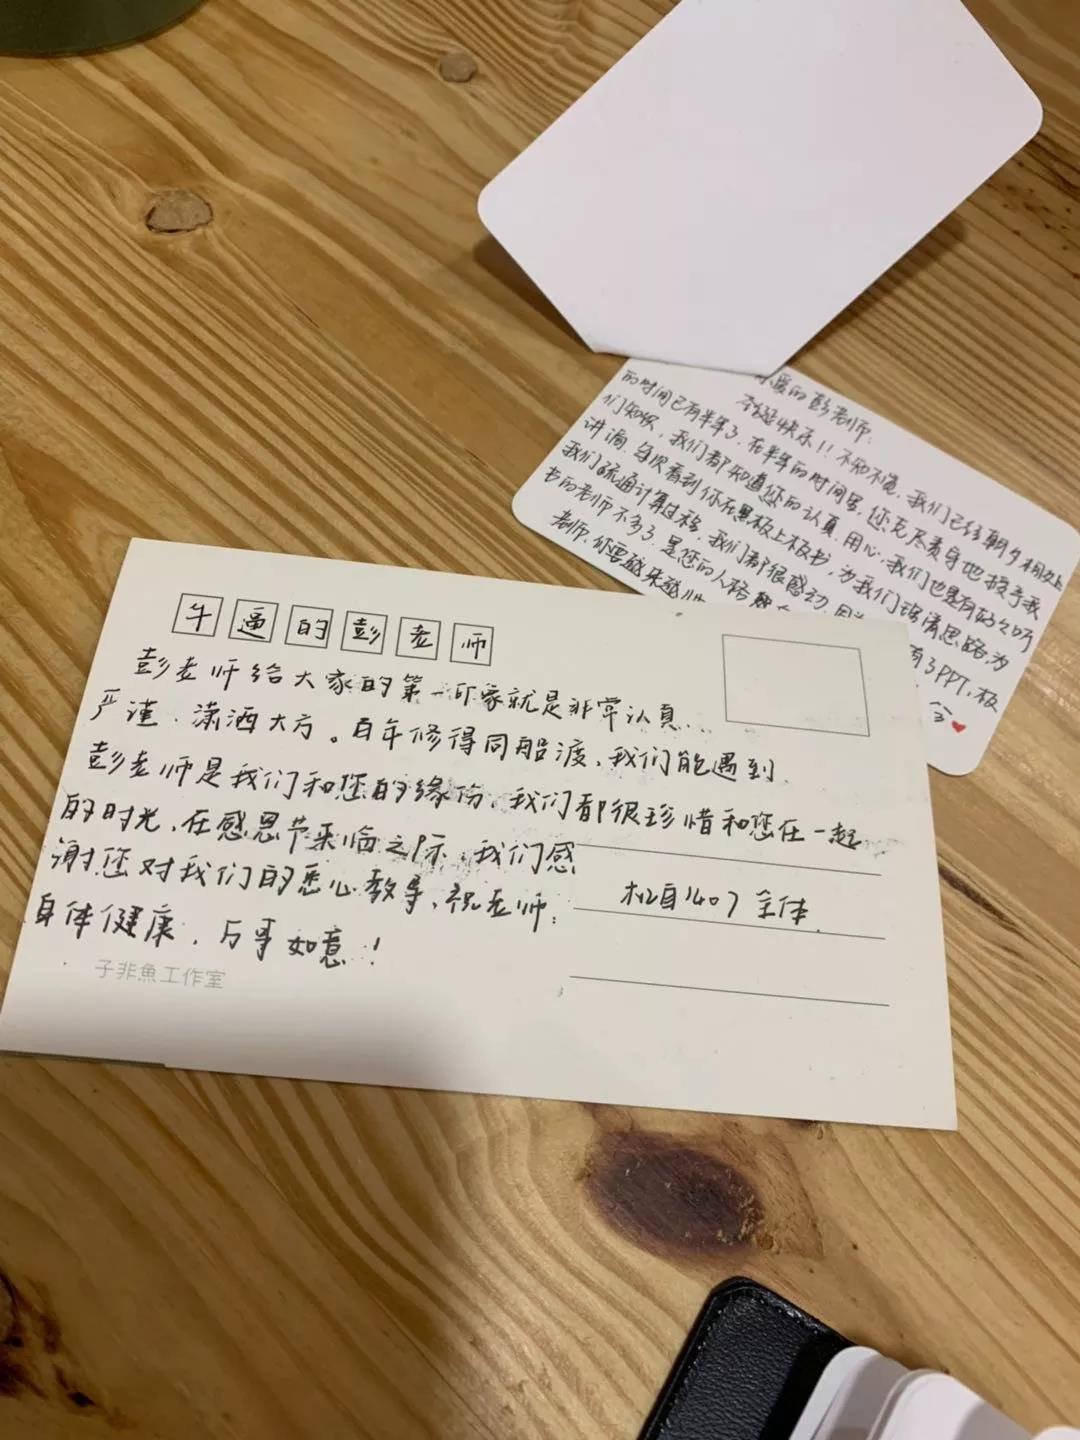 牛逼的彭老师
彭老师给大家的第一印象就是非常认真、
严谨、潇洒大方。百年修得同船渡,我们能遇到
彭老师是我们和您的缘份,我们都很珍惜和您在一起
的时光,在感恩节来临之际,我们感
谢您对我们的悉心教导,祝老师:
身体健康,万事如意!
机自1407全体
子非魚工作室
爱的彭老师:
圣诞快乐!!不知不觉,我们已经朝夕相处
的时间已有半年了,在半年的时间里,您克尽责守地授予我
们知识,我们都知道您的认真、用心,我们也是有好好听
讲滴,每次看到你在黑板上板书,为我们理清思路,为
我们疏通计算过程,我们都很感动,因为
有了PPT,板
书的老师不多了,是您的人格
老师,你要越来越